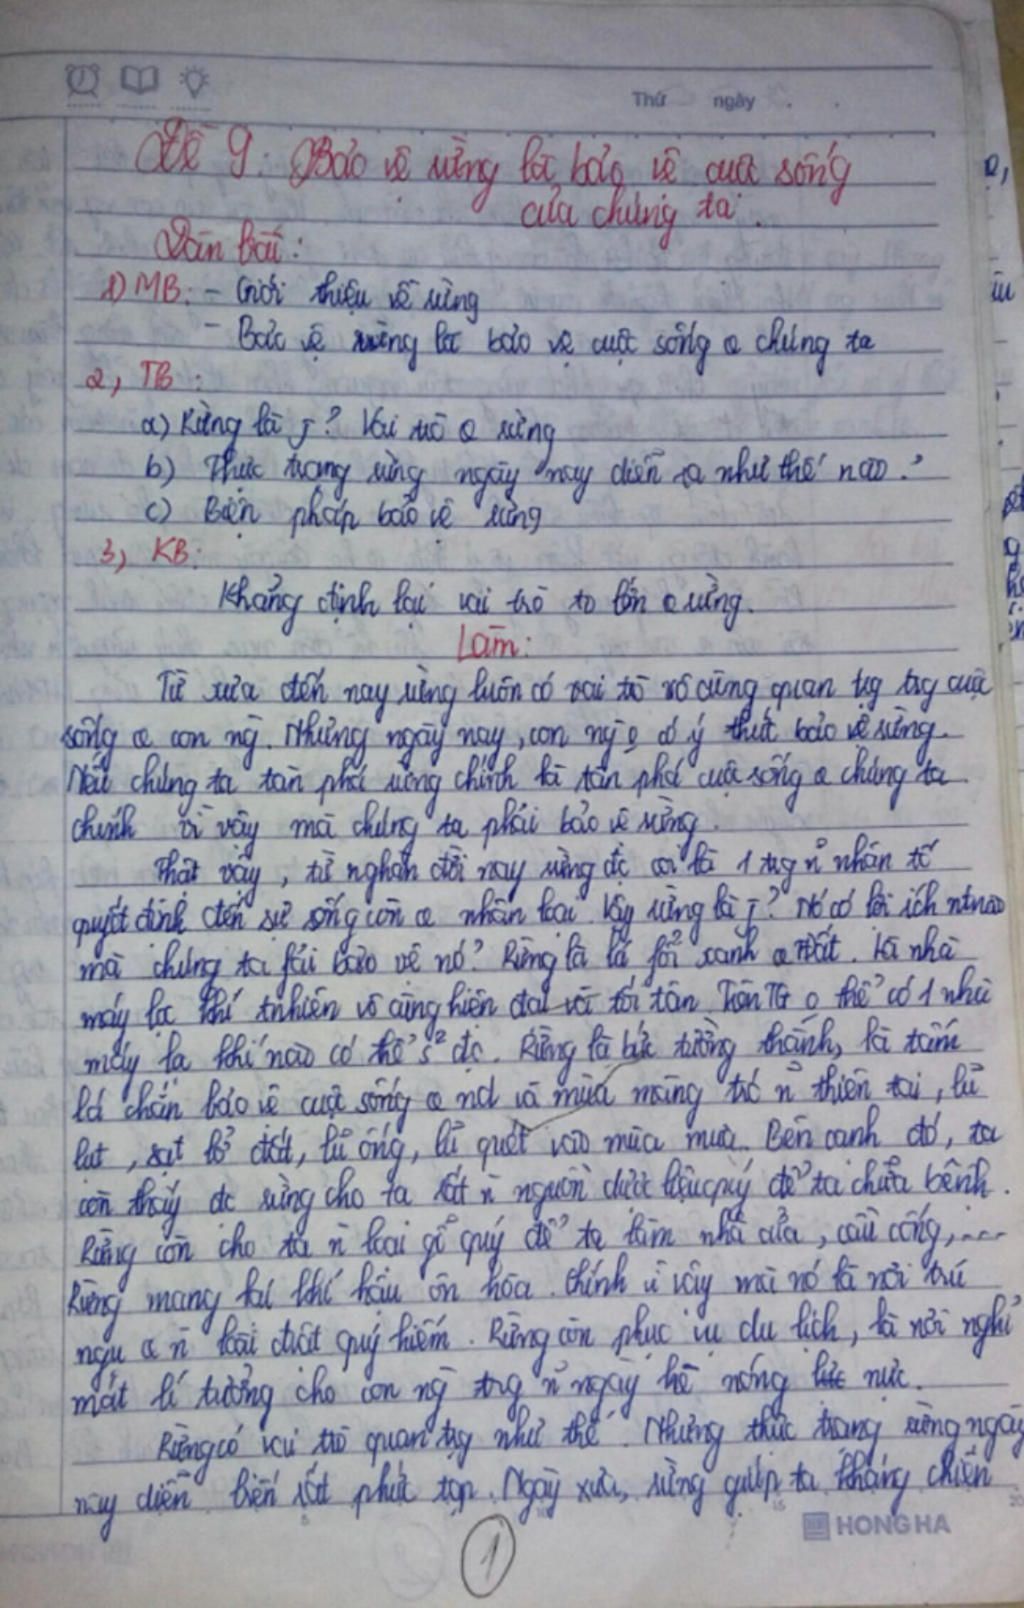 Thứ ngày
Đề 9: Bảo vệ rừng là bảo vệ cuộc sống
của chúng ta.
Dàn bài:
1) MB: - Giới thiệu về rừng
- Bảo vệ rừng là bảo vệ cuộc sống chúng ta
2, TB:
a) Rừng là j? Vai trò rừng
b) Thực trạng rừng ngày nay diễn ra như thế nào?
c) Biện pháp bảo vệ rừng
3, KB:
Khẳng định lại vai trò to lớn rừng.
Làm:
Từ xưa đến nay rừng luôn có vai trò vô cùng quan trg trg cuộc
sống con ng. Nhưng ngày nay, con ng có ý thức bảo vệ rừng.
Nếu chúng ta tàn phá rừng chính là tàn phá cuộc sống chúng ta
chính vì vậy mà chúng ta phải bảo vệ rừng.
Thật vậy, từ nghàn đời nay rừng đc coi là 1 trg nhân tố
quyết định đến sự sống còn nhân loại. Vậy rừng là j? Nó có lợi ích ntnào
mà chúng ta fải bảo vệ nó? Rừng là lá fổi xanh Trái Đất. Là nhà
máy lọc khí tnhiên vô cùng hiện đại và tối tân. Trên TG o thể có 1 nhà
máy lọc khí nào có thể s² đc. Rừng là bức tường thành, là tấm
lá chắn bảo vệ cuộc sống nd và mùa màng trc thiên tai, lũ
lụt, sạt lở đất, lũ ống, lũ quét vào mùa mưa. Bên cạnh đó, ta
còn thấy đc rừng cho ta rất nguồn dược liệu quý để ta chữa bệnh.
Rừng còn cho ta loại gỗ quý để ta làm nhà cửa, cầu cống,....
Rừng mang lại khí hậu ôn hòa. Chính vì vậy mà nó là nơi trú
ngụ loài quý hiếm. Rừng còn phục vụ du lịch, là nơi nghỉ
mát lí tưởng cho con ng trg ngày hè nóng nực.
Rừng có vai trò quan trg như thế. Nhưng thực trạng rừng ngày
nay diễn biến rất phức tạp. Ngày xưa, rừng giúp ta kháng chiến
HONG HA
1